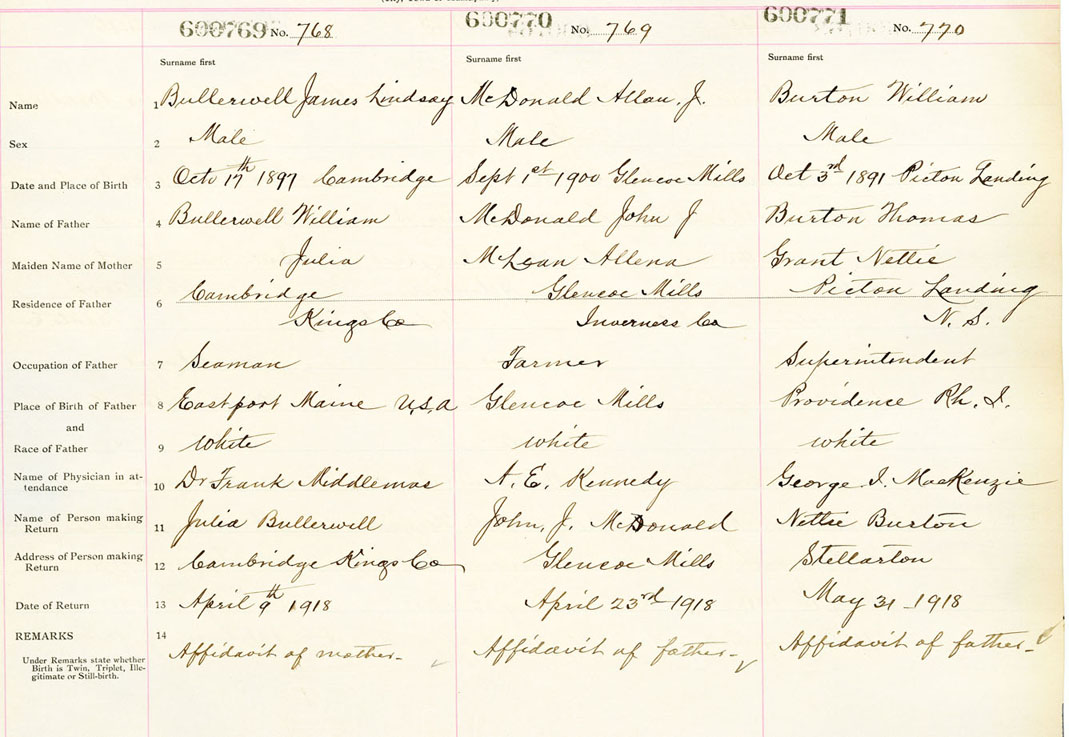 600769 No. 768 600770 No. 769 600771 No. 770
Surname first Surname first Surname first
Name 1 Bullerwell James Lindsay McDonald Allan. J. Burton William
Sex 2 Male Male Male
Date and Place of Birth 3 Oct 17th 1897 Cambridge Sept 1st 1900 Glencoe Mills Oct 3rd 1891 Picton Landing
Name of Father 4 Bullerwell William McDonald John J Burton Thomas
Maiden Name of Mother 5 Julia McLean Allena Grant Nettie
Residence of Father 6 Cambridge Glencoe Mills Picton Landing
Kings Co Inverness Co N.S.
Occupation of Father 7 Seaman Farmer Superintendent
Place of Birth of Father 8 Eastport Maine U.S.A Glencoe Mills Providence Rh. I.
and
Race of Father 9 White white white
Name of Physician in at-
tendance 10 Dr Frank Middlemas A. E. Kennedy George. I. MacKenzie
Name of Person making
Return 11 Julia Bullerwell John. J. McDonald Nettie Burton
Address of Person making
Return 12 Cambridge Kings Co Glencoe Mills Stellarton
Date of Return 13 April 9th 1918 April 23rd 1918 May 31 - 1918
REMARKS 14 Affidavit of mother - Affidavit of father - Affidavit of father -
Under Remarks state whether
Birth is Twin, Triplet, Ille-
gitimate or Still-birth.